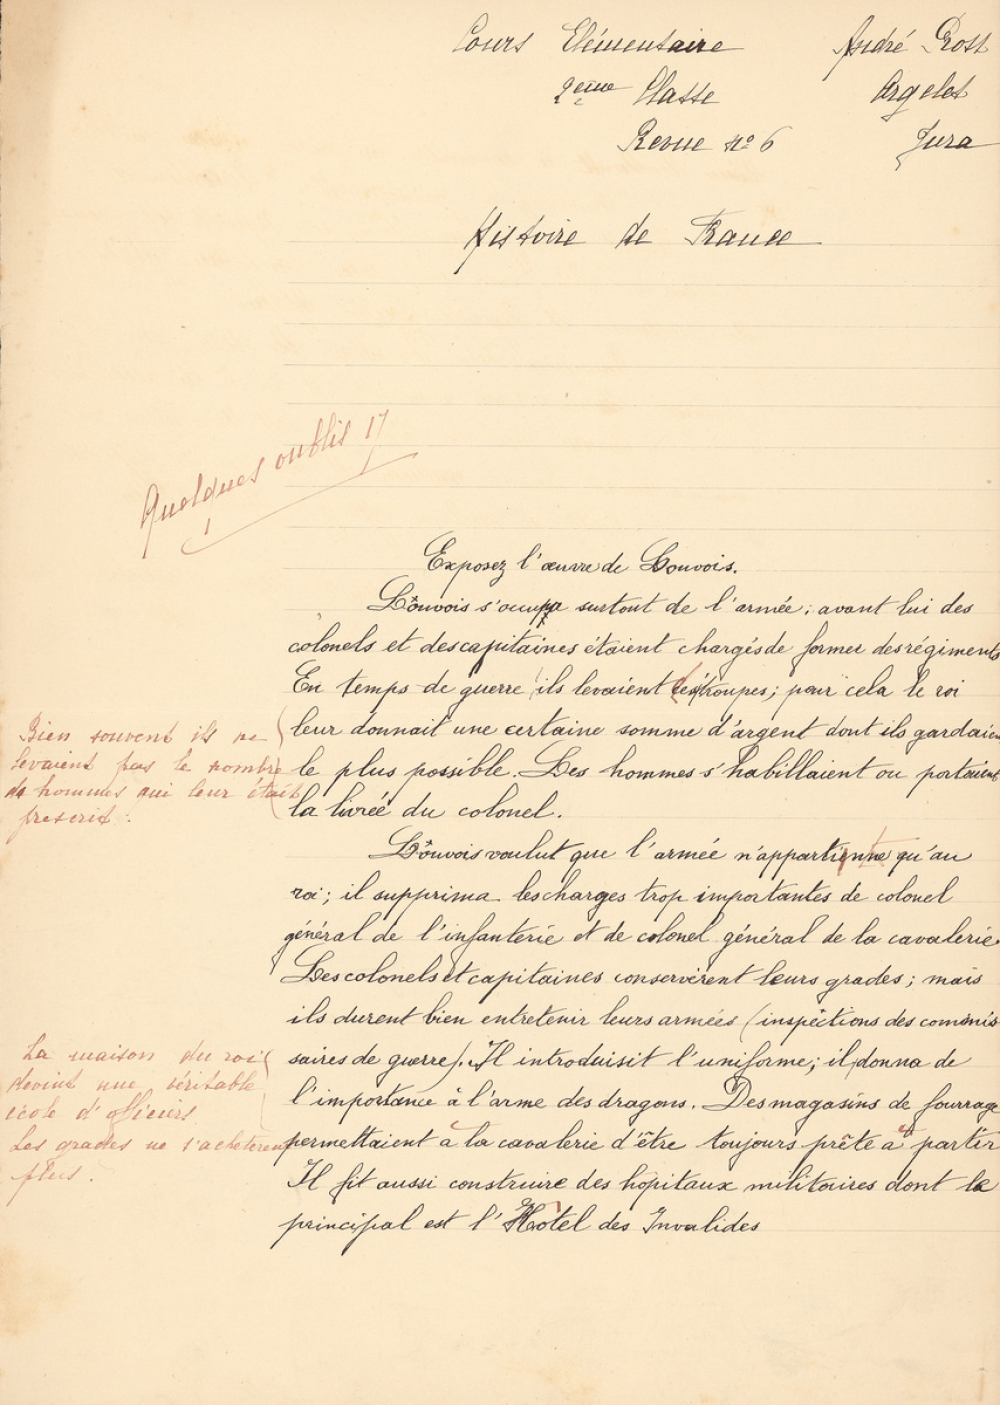 Cours Elémentaire
André Rost
2eme Classe
Argelet
Revue nº 6
Jura
Histoire de France
Quelques oublis 17
Exposez l'œuvre de Louvois.
Louvois s'occupa surtout de l'armée ; avant lui des
colonels et des capitaines étaient chargés de former des régiments
En temps de guerre ils levaient les troupes ; pour cela le roi
leur donnait une certaine somme d'argent dont ils gardaient
le plus possible. Les hommes s'habillaient ou portaient
la livrée du colonel.
Bien souvent ils ne
levaient pas le nombre
de hommes qui leur était
prescrit.
Louvois voulut que l'armée n'appartienne qu'au
roi ; il supprima les charges trop importantes de colonel
général de l'infanterie et de colonel général de la cavalerie
Les colonels et capitaines conservèrent leurs grades ; mais
ils durent bien entretenir leurs armées (inspections des commis
saires de guerre). Il introduisit l'uniforme ; il donna de
l'importance à l'arme des dragons. Des magasins de fourrage
permettaient à la cavalerie d'être toujours prête à partir
Il fit aussi construire des hôpitaux militaires dont le
principal est l'Hôtel des Invalides
La maison du roi
devint une véritable
école d'officiers
Les grades ne s'achetèrent
plus.